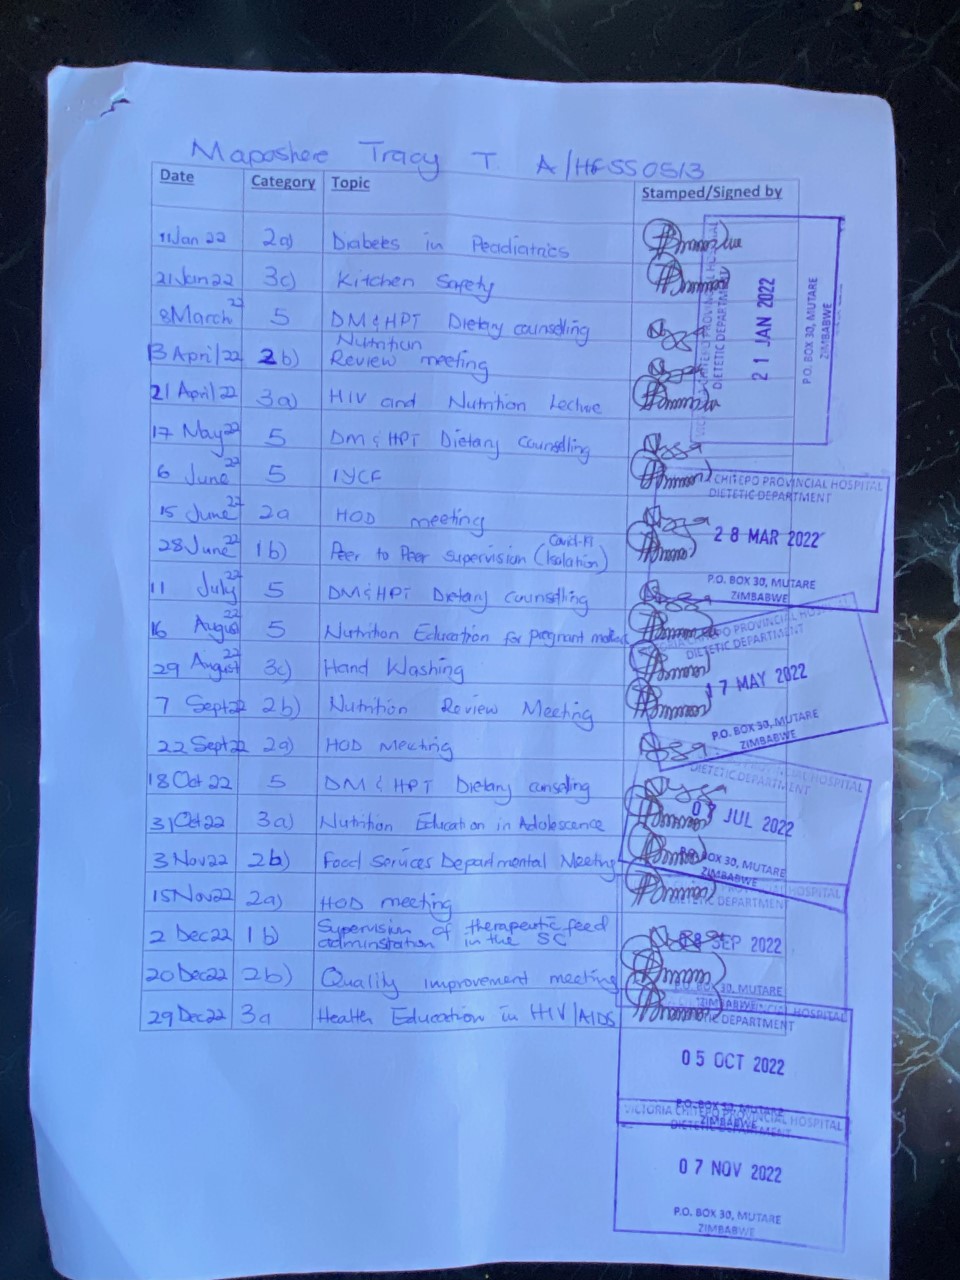 Mapashere Tracy T A/HFSS0513
Date Category Topic Stamped/Signed by
11 Jan 22 2a) Diabetes in Peadiatrics
21 Jan 22 3c) Kitchen Safety
8 March 22 5 DM & HPT Dietary counselling
13 April/22 2b) Nutrition Review meeting
21 April/22 3a) HIV and Nutrition Lecture
17 May 22 5 DM & HPT Dietary Counselling
6 June 22 5 IYCF
15 June 22 2a HOD meeting
28 June 22 1b) Peer to Peer Supervision (Covid-19 Isolation)
11 July 22 5 DM & HPT Dietary Counselling
16 August 22 5 Nutrition Education for pregnant mothers
29 August 22 3c) Hand Washing
7 Sept 22 2b) Nutrition Review Meeting
22 Sept 22 2a) HOD Meeting
18 Oct 22 5 DM & HPT Dietary counseling
31 Oct 22 3a) Nutrition Education in Adolescence
3 Nov 22 2b) Food Services Departmental Meeting
15 Nov 22 2a) HOD meeting
2 Dec 22 1b) Supervision of therapeutic feed
adminstration in the SC
20 Dec 22 2b) Quality improvement meeting
29 Dec 22 3a Health Education in HIV/AIDS
CHITEPO PROVINCIAL HOSPITAL
DIETETIC DEPARTMENT
21 JAN 2022
P.O. BOX 30, MUTARE
ZIMBABWE
CHITEPO PROVINCIAL HOSPITAL
DIETETIC DEPARTMENT
28 MAR 2022
P.O. BOX 30, MUTARE
ZIMBABWE
CHITEPO PROVINCIAL HOSPITAL
DIETETIC DEPARTMENT
17 MAY 2022
P.O. BOX 30, MUTARE
ZIMBABWE
PROVINCIAL HOSPITAL
DIETETIC DEPARTMENT
07 JUL 2022
P.O. BOX 30, MUTARE
ZIMBABWE
PROVINCIAL HOSPITAL
DIETETIC DEPARTMENT
SEP 2022
P.O. BOX 30, MUTARE
ZIMBABWE
HOSPITAL
DIETETIC DEPARTMENT
05 OCT 2022
P.O. BOX 30, MUTARE
ZIMBABWE
VICTORIA CHITEPO PROVINCIAL HOSPITAL
DIETETIC DEPARTMENT
07 NOV 2022
P.O. BOX 30, MUTARE
ZIMBABWE